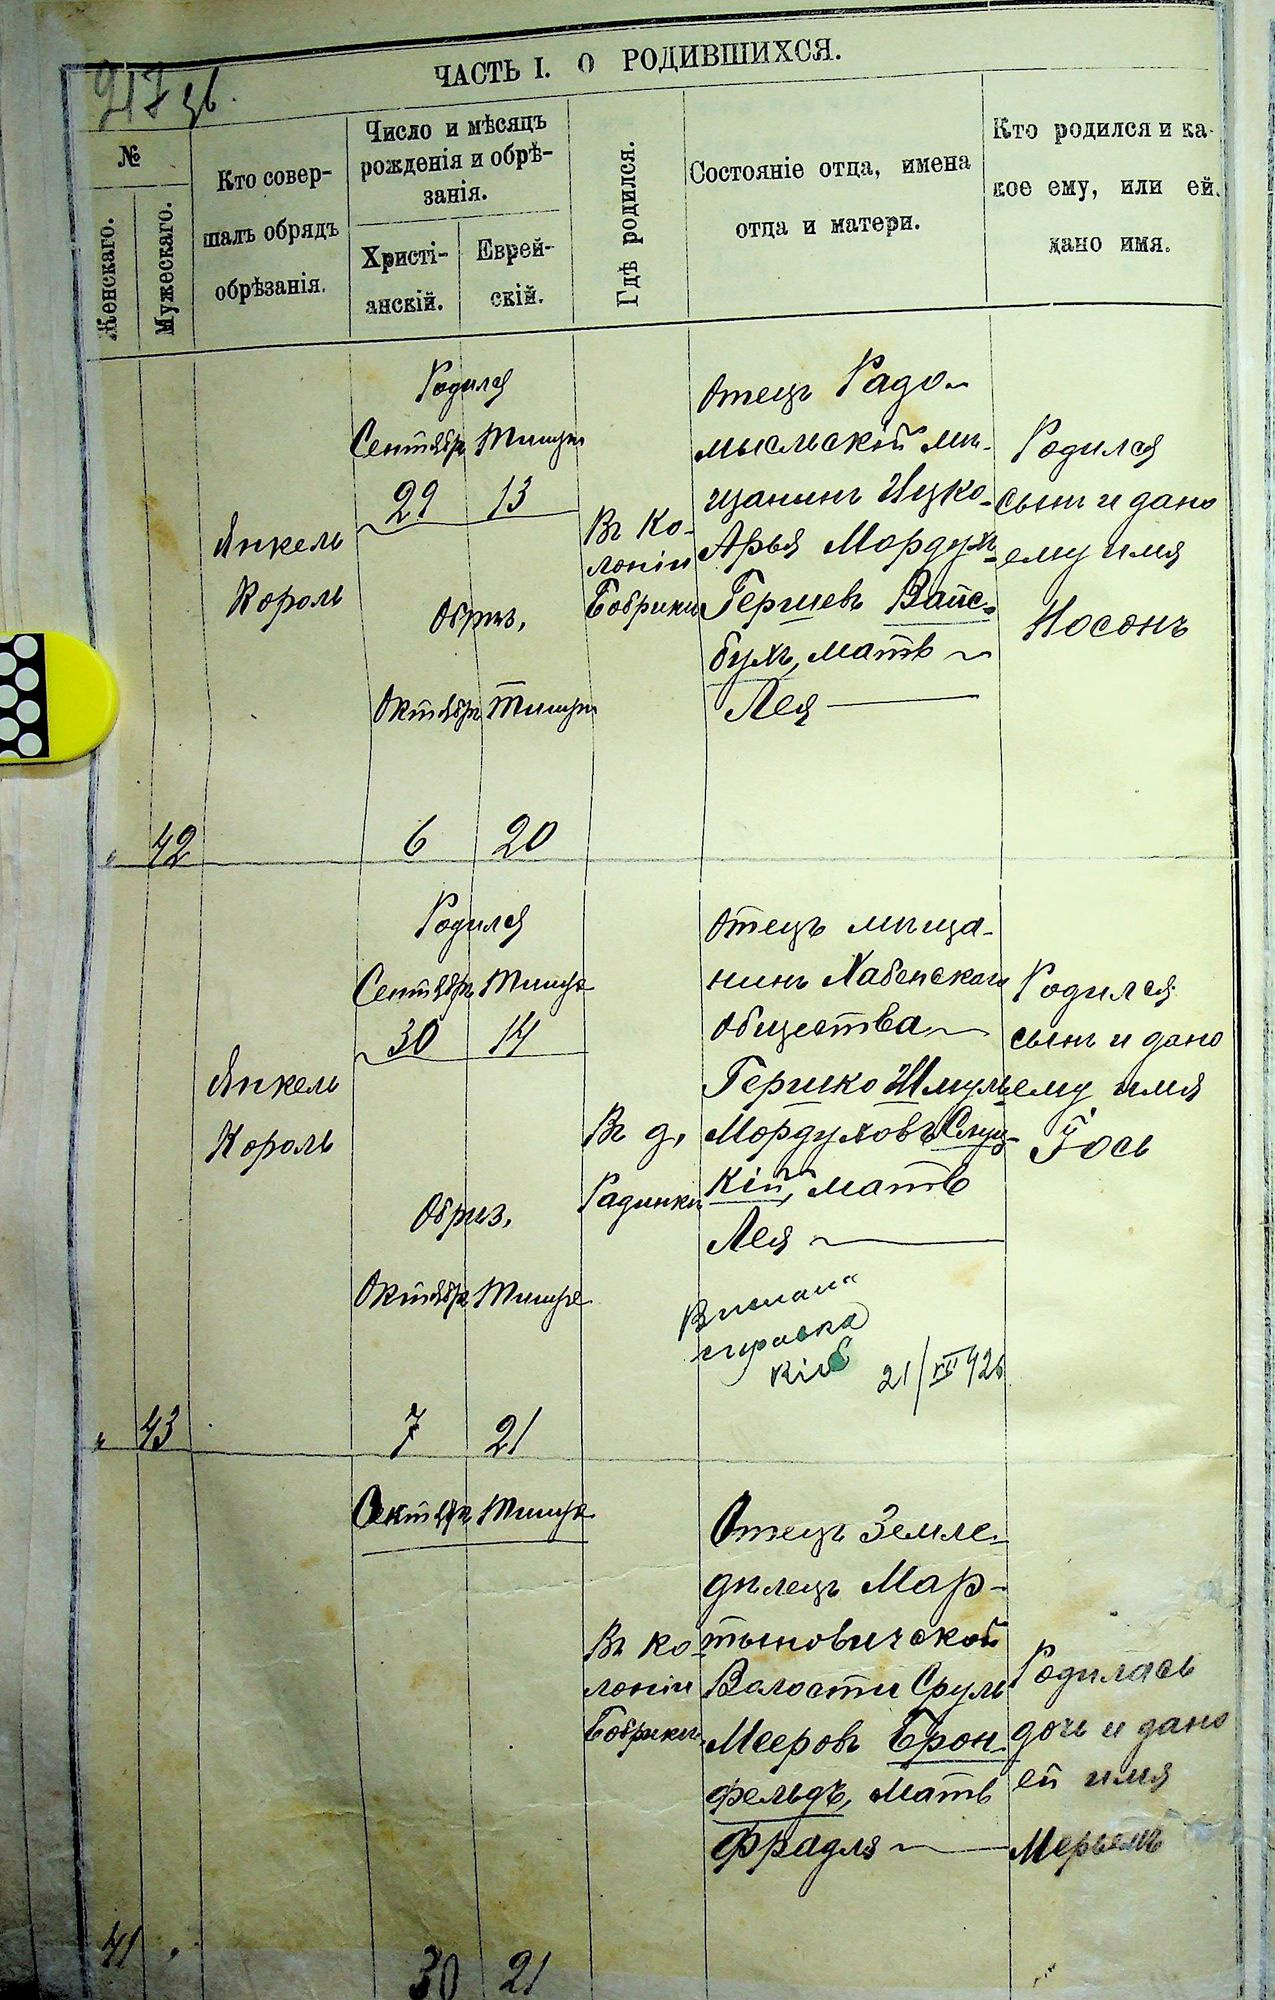 ЧАСТЬ I. О РОДИВШИХСЯ.
№
Женскаго.
Мужескаго.
Кто совер-
шалъ обрядъ
обрѣзанія.
Число и мѣсяцъ
рожденія и обрѣ-
занія.
Христі-
анскій.
Еврей-
скій.
Гдѣ родился.
Состояніе отца, имена
отца и матери.
Кто родился и ка-
кое ему, или ей.
дано имя.
" 42
Янкель
Король
Родился
Сентябр Тишри
29 13
Обрѣз.
Октябр Тишри
6 20
Въ Ко-
лоніи
Бобрики
Отецъ Радо-
мысльскій мѣ-
щанинъ Ицко-
Арья Мордухъ
Гершевъ Вайс-
бухъ, мать
Лея
Родился
сынъ и дано
ему имя
Носонъ
" 43
Янкель
Король
Родился
Сентябр Тишри
30 14
Обрѣз.
Октябр Тишре
7 21
Въ д.
Радинки
Отецъ мѣща-
нинъ Хабенскаго
Общества
Гершко Шмуль
Мордуховъ Слуц-
кій, мать
Лея
справка
21/VII 926
Родился
сынъ и дано
ему имя
Іось
41 "
Октябр Тишре
30 21
Въ ко-
лоніи
Бобрики
Отецъ Земле-
дѣлецъ Мар-
тыновичской
Волости Сруль
Мееровъ Брон-
фельдъ, Мать
Фрадля
Родилась
дочь и дано
ей имя
Мерьемъ